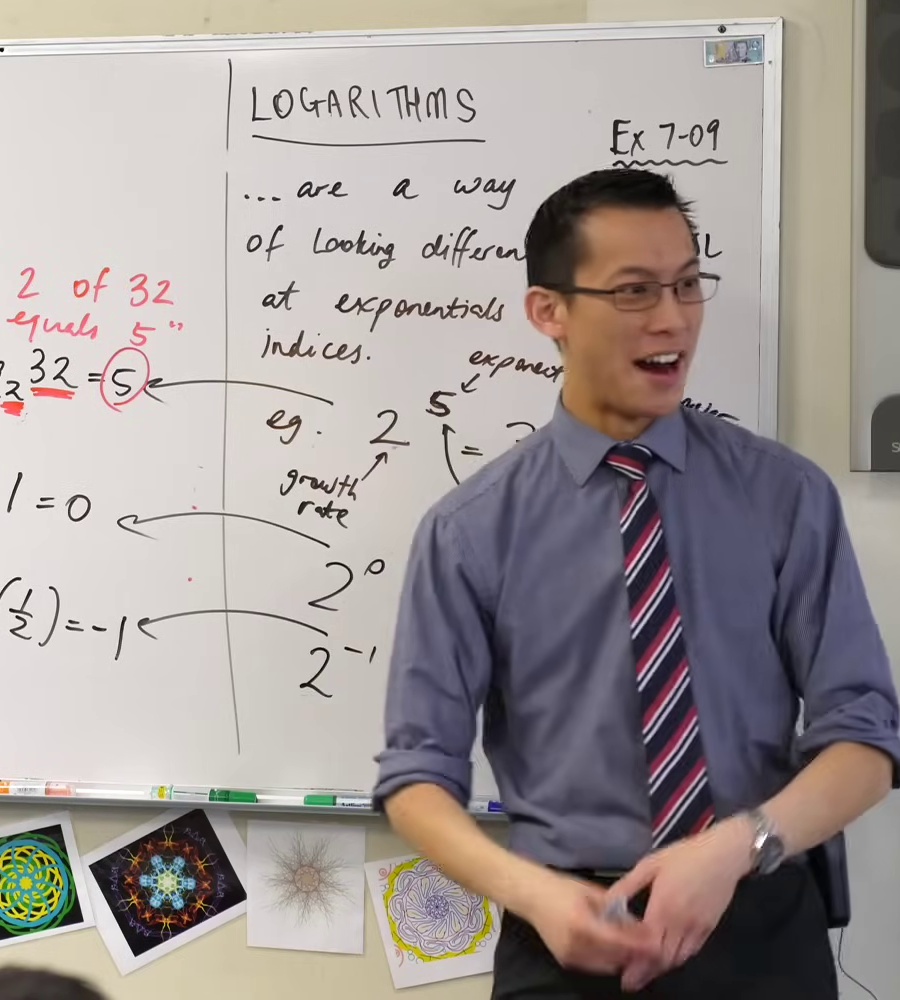 2 of 32
equals 5"
2 32 = 5
1 = 0
(1/2) = -1
LOGARITHMS
Ex 7-09
... are a way
of looking differen
at exponentials
indices.
exponent
eg. 2^5 =
growth
rate
2^0
2^-1